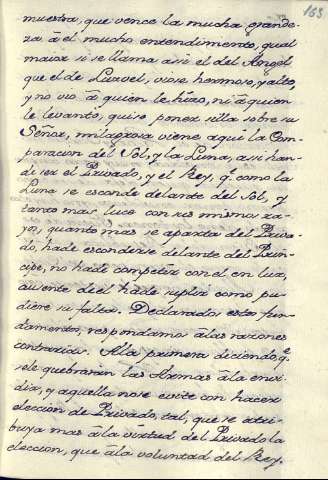 163
muestra, que vence la mucha grande-
za â el mucho entendimiento, qual
maior si se llama asi el del Angel
que el de Luzvel, viose hermoso, y alto,
y no vio â quien le hizo, ni â quien
le levanto, quiso poner silla sobre su
Señor, milagrosa viene aqui la Com-
paracion del Sol, y la Luna, asi han
di ser el Privado, y el Rey, q.e como la
Luna se esconde delante del Sol, y
tanto mas luce con sus mismos ra-
yos, quanto mas se aparta del Priva-
do, hade esconderse delante del Prin-
cipe, no hade competir con el en luz,
ausente de el hade suplir como pu-
diere su falta. Declarado este fun-
damento, respondamos âlas razones
contrarias. Ala primera diciendo, q.e
sele quebraran las Armas âla envi-
dia, y aquella nose evite con hacer
eleccion de Privado, tal, que se atri-
buya mas âla virtud del Privado la
eleccion, que âla voluntad del Rey.